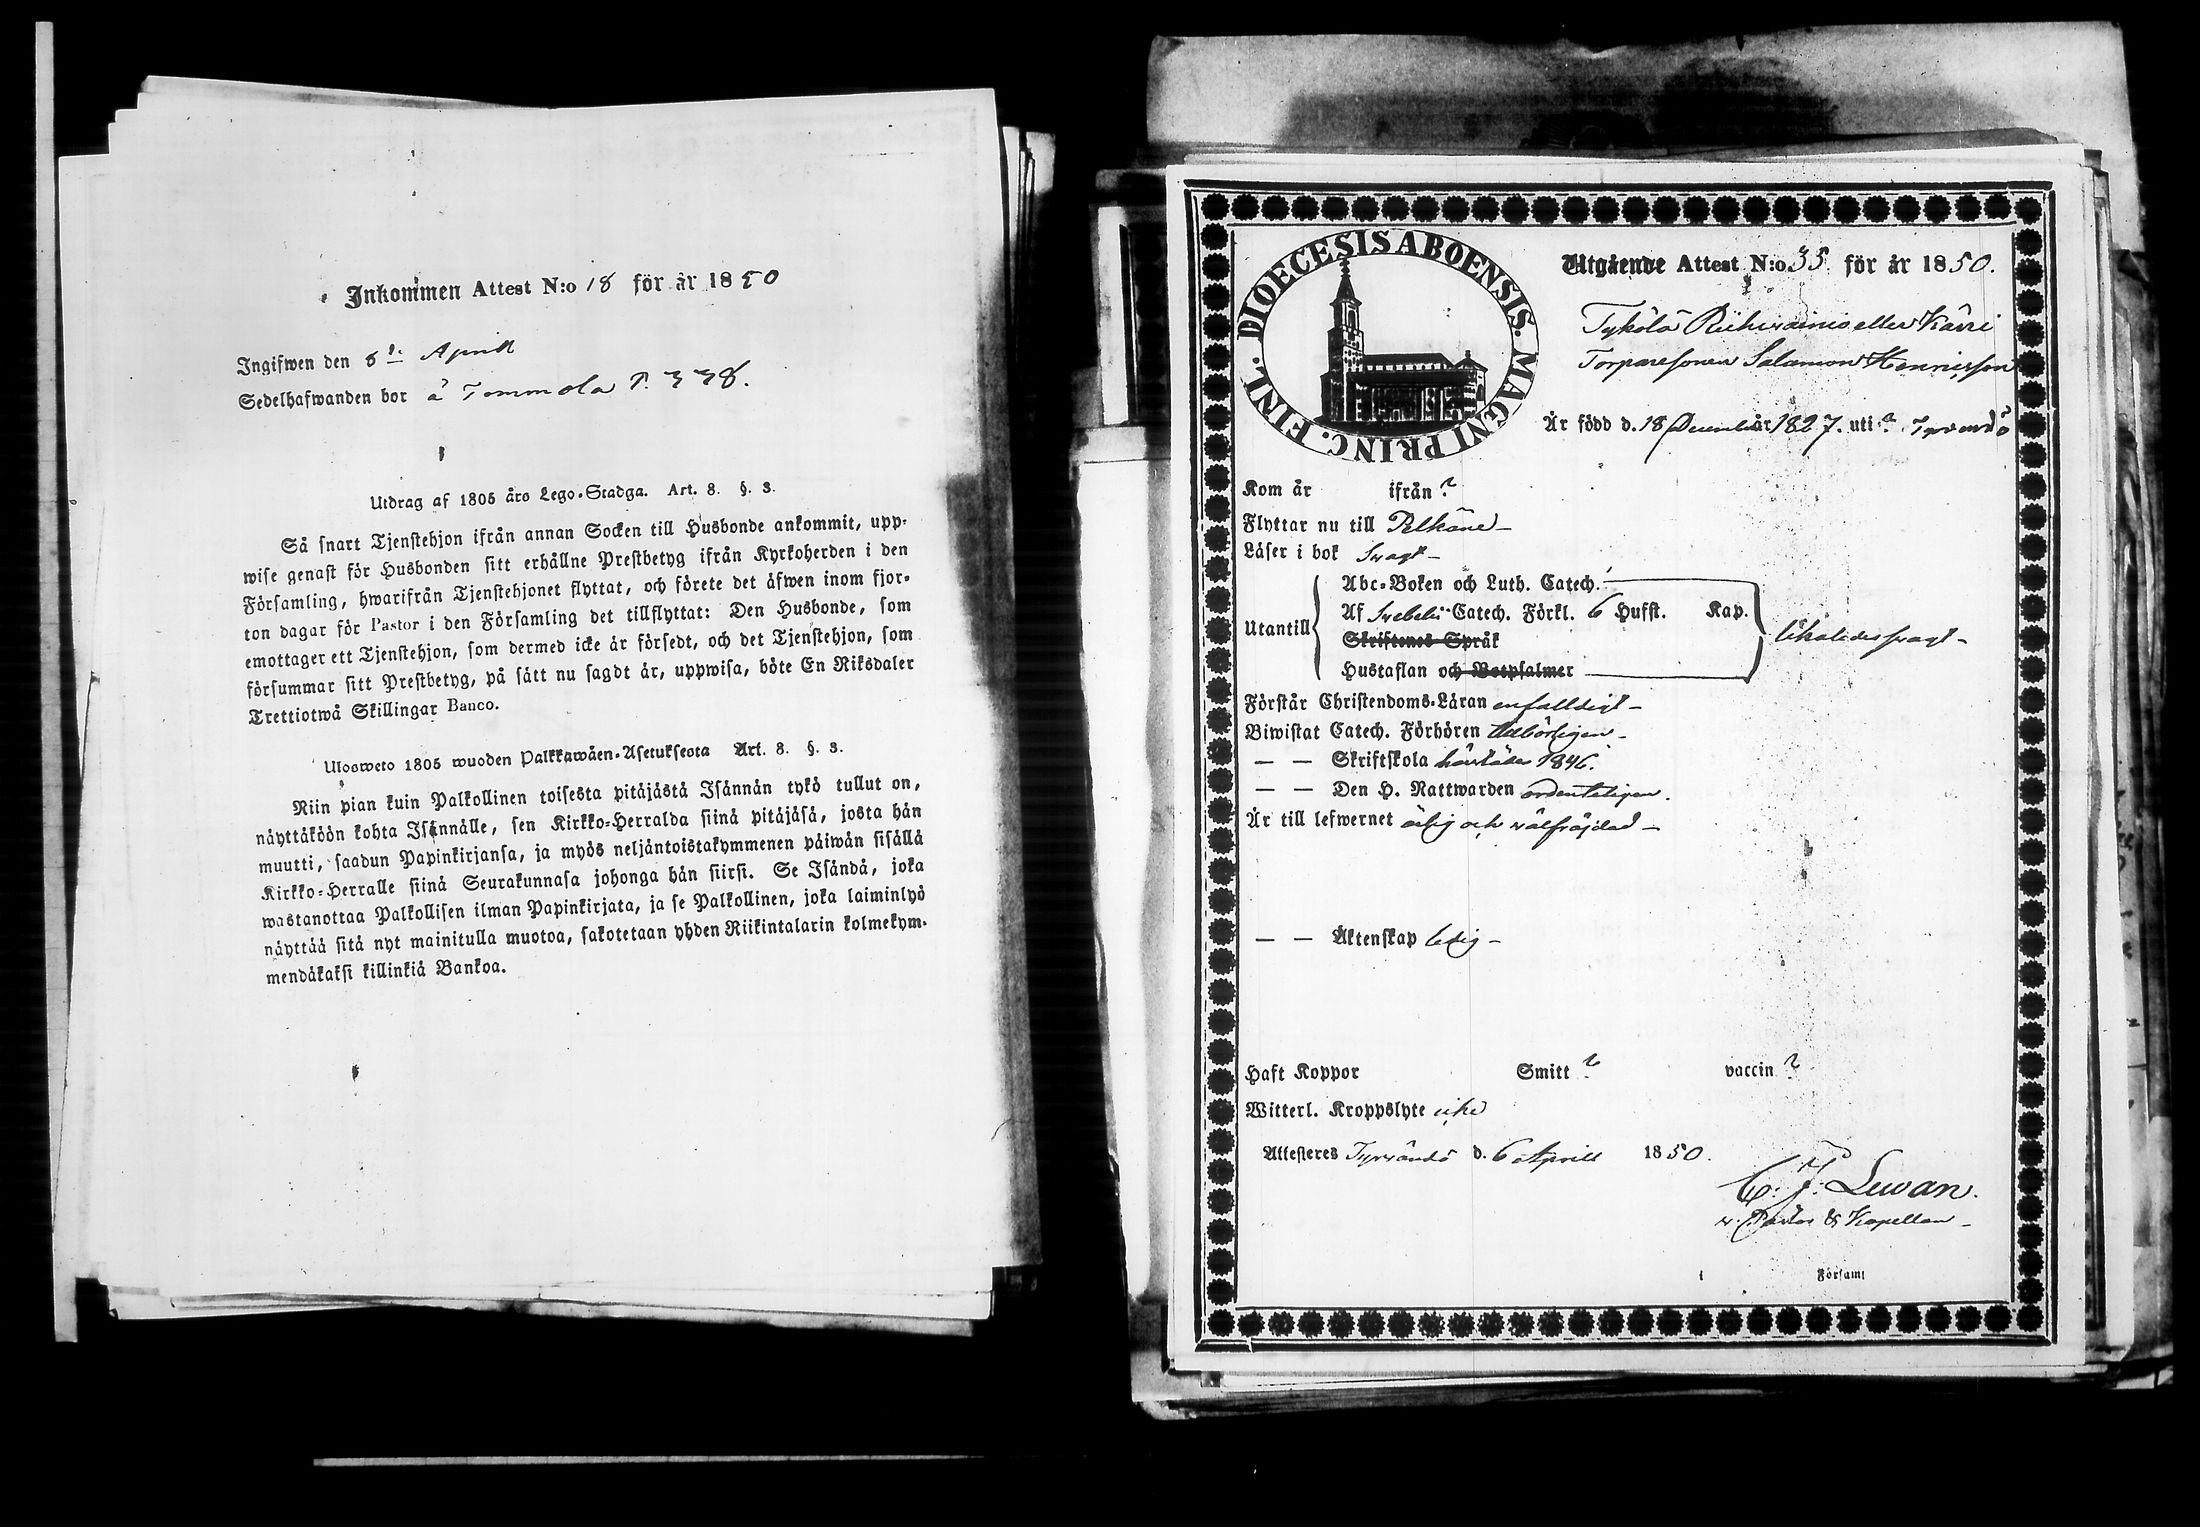 Inkommen Attest N:o 18 för år 1850
Ingifwen den 8de April
Sedelhafwanden bor å Tommola P. 338.
Utdrag af 1805 års Lego-Stadga. Art. 8. §. 3.
Så snart Tjenstehjon ifrån annan Socken till Husbonde ankommit, upp-
wise genast för Husbonden sitt erhållne Prestbetyg ifrån Kyrkoherden i den
Församling, hwarifrån Tjenstehjonet flyttat, och förete det äfwen inom fjor-
ton dagar för Pastor i den Församling det tillflyttat: Den Husbonde, som
emottager ett Tjenstehjon, som dermed icke är försedt, och det Tjenstehjon, som
försummar sitt Prestbetyg, på sätt nu sagdt är, uppwisa, böte En Riksdaler
Trettiotwå Skillingar Banco.
Ulosweto 1805 wuoden Palkkawäen-Asetuksesta Art. 8. §. 3.
Niin pian kuin Palkollinen toisesta pitäjästä Isännän tykö tullut on,
näyttäköön kohta Isännälle, sen Kirkko-Herralda siinä pitäjäsä, josta hän
muutti, saadun Papinkirjansa, ja myös neljäntoistakymmenen päiwän sisällä
Kirkko-Herralle siinä Seurakunnasa johonga hän siirsi. Se Isändä, joka
wastanottaa Palkollisen ilman Papinkirjata, ja se Palkollinen, joka laiminlyö
näyttää sitä nyt mainitulla muotoa, sakotetaan yhden Riikintalarin kolmekym-
mendäkaksi killinkiä Bankoa.
DIOECESIS ABOENSIS. MAGNI PRINC. FINL.
Utgående Attest N:o 35 för år 1850.
Tykölä eller Kärri
Torparesonen Salamon Henricsson
Är född d. 18 December år 1827. uti ? Tyrvändö
Kom år ifrån ?
Flyttar nu till Pelkäne
Läser i bok Svagt
Abc-Boken och Luth. Catech.
Utantill Af Svebelii Catech. Förkl. 6 Hufst. Kap. likaledes svagt
Skriftenes Språk
Hustaflan och Botpsalmer
Förstår Christendoms-Läran enfalldigt
Biwistat Catech. Förhören tillbörligen
— — Skriftskola 1846.
— — Den H. Nattwarden ordenteligen.
Är till lefwernet ärlig och välfräjdad
— — Äktenskap ledig
Haft Koppor Smitt ? vaccin ?
Witterl. Kroppslyte icke
Attesteres Tyrvändö d. 6 Aprill 1850.
C. J. Lewan.
v. Pastor & Kapellan
i Församl